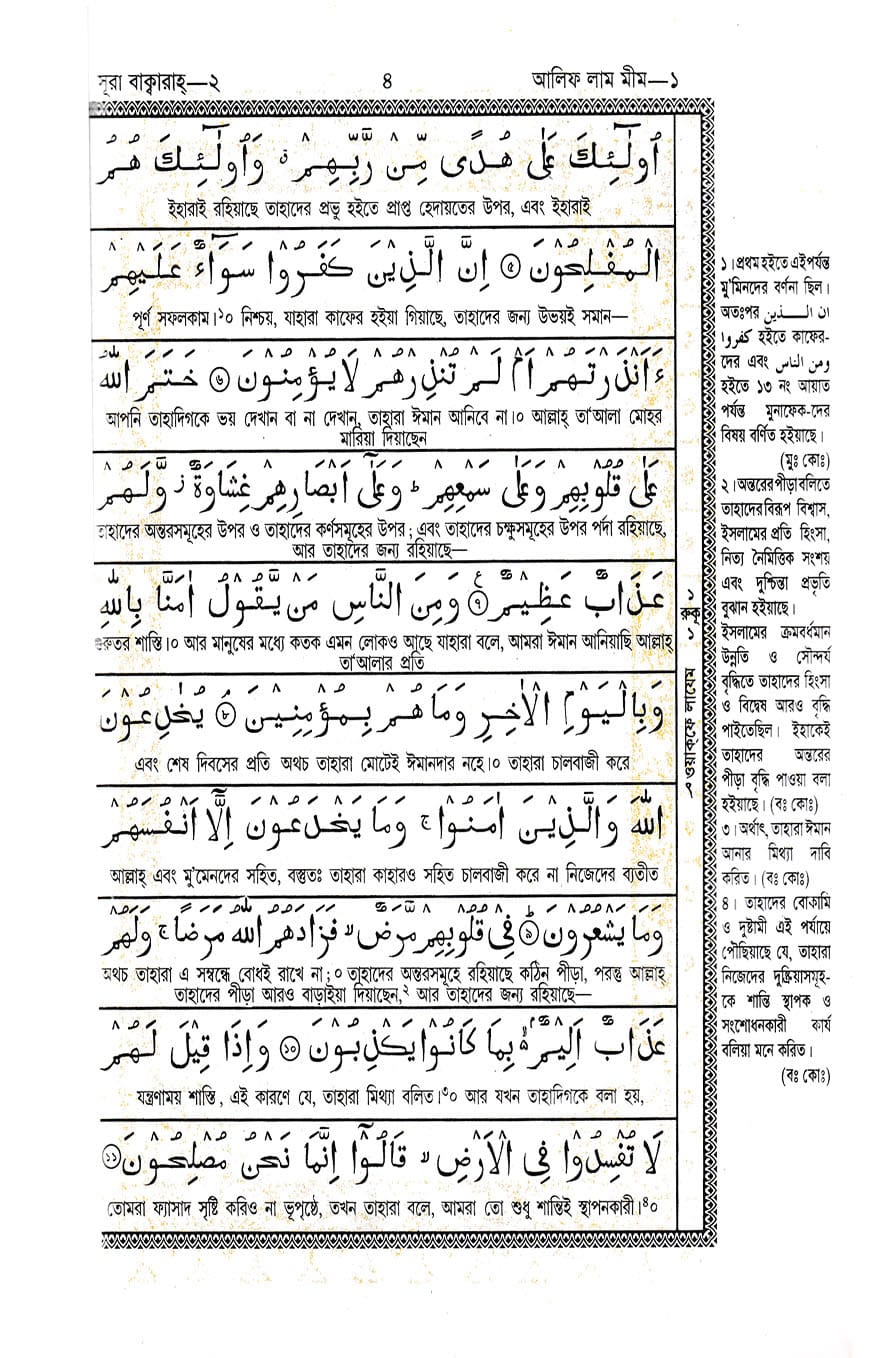 সূরা বাক্বারাহ্—২ ৪ আলিফ লাম মীম—১
اُولٰٓئِكَ عَلٰى هُدًى مِّنْ رَّبِّهِمْ ۫ وَاُولٰٓئِكَ هُمُ
ইহারাই রহিয়াছে তাহাদের প্রভু হইতে প্রাপ্ত হেদায়তের উপর, এবং ইহারাই
الْمُفْلِحُوْنَ ۝۵ اِنَّ الَّذِيْنَ كَفَرُوْا سَوَآءٌ عَلَيْهِمْ
পূর্ণ সফলকাম।১০ নিশ্চয়, যাহারা কাফের হইয়া গিয়াছে, তাহাদের জন্য উভয়ই সমান—
ءَاَنْذَرْتَهُمْ اَمْ لَمْ تُنْذِرْهُمْ لَا يُؤْمِنُوْنَ ۝۶ خَتَمَ اللّٰهُ
আপনি তাহাদিগকে ভয় দেখান বা না দেখান, তাহারা ঈমান আনিবে না।০ আল্লাহ্ তা'আলা মোহর
মারিয়া দিয়াছেন
عَلٰى قُلُوْبِهِمْ وَعَلٰى سَمْعِهِمْ ؕ وَعَلٰٓى اَبْصَارِهِمْ غِشَاوَةٌ ز وَّلَهُمْ
তাহাদের অন্তরসমূহের উপর ও তাহাদের কর্ণসমূহের উপর; এবং তাহাদের চক্ষুসমূহের উপর পর্দা রহিয়াছে,
আর তাহাদের জন্য রহিয়াছে—
عَذَابٌ عَظِيْمٌ ۝۷ ع وَمِنَ النَّاسِ مَنْ يَّقُوْلُ اٰمَنَّا بِاللّٰهِ
গুরুতর শাস্তি।০ আর মানুষের মধ্যে কতক এমন লোকও আছে যাহারা বলে, আমরা ঈমান আনিয়াছি আল্লাহ্
তা'আলার প্রতি
وَبِالْيَوْمِ الْاٰخِرِ وَمَا هُمْ بِمُؤْمِنِيْنَ ۝۸ يُخٰدِعُوْنَ
এবং শেষ দিবসের প্রতি অথচ তাহারা মোটেই ঈমানদার নহে।০ তাহারা চালবাজী করে
اللّٰهَ وَالَّذِيْنَ اٰمَنُوْا ۚ وَمَا يَخْدَعُوْنَ اِلَّآ اَنْفُسَهُمْ
আল্লাহ্ এবং মু'মেনদের সহিত, বস্তুতঃ তাহারা কাহারও সহিত চালবাজী করে না নিজেদের ব্যতীত
وَمَا يَشْعُرُوْنَ ۝۹ فِيْ قُلُوْبِهِمْ مَّرَضٌ ۙ فَزَادَهُمُ اللّٰهُ مَرَضًا ۚ وَلَهُمْ
অথচ তাহারা এ সম্বন্ধে বোধই রাখে না;০ তাহাদের অন্তরসমূহে রহিয়াছে কঠিন পীড়া, পরন্তু আল্লাহ্
তাহাদের পীড়া আরও বাড়াইয়া দিয়াছেন,২ আর তাহাদের জন্য রহিয়াছে—
عَذَابٌ اَلِيْمٌۢ بِمَا كَانُوْا يَكْذِبُوْنَ ۝۱۰ وَاِذَا قِيْلَ لَهُمْ
যন্ত্রণাময় শাস্তি, এই কারণে যে, তাহারা মিথ্যা বলিত।৩০ আর যখন তাহাদিগকে বলা হয়,
لَا تُفْسِدُوْا فِى الْاَرْضِ ۙ قَالُوْٓا اِنَّمَا نَحْنُ مُصْلِحُوْنَ ۝۱۱
তোমরা ফ্যাসাদ সৃষ্টি করিও না ভূপৃষ্ঠে, তখন তাহারা বলে, আমরা তো শুধু শান্তিই স্থাপনকারী।৪০
রুকূ
ওয়াক্‌ফে লাযেম
১। প্রথম হইতে এইপর্যন্ত
মু'মিনদের বর্ণনা ছিল।
অতঃপর ان الـــذين
كفروا হইতে কাফের-
দের এবং ومن الناس
হইতে ১৩ নং আয়াত
পর্যন্ত মুনাফেক-দের
বিষয় বর্ণিত হইয়াছে।
(মুঃ কোঃ)
২। অন্তরের পীড়া বলিতে
তাহাদের বিরূপ বিশ্বাস,
ইসলামের প্রতি হিংসা,
নিত্য নৈমিত্তিক সংশয়
এবং দুশ্চিন্তা প্রভৃতি
বুঝান হইয়াছে।
ইসলামের ক্রমবর্ধমান
উন্নতি ও সৌন্দর্য
বৃদ্ধিতে তাহাদের হিংসা
ও বিদ্বেষ আরও বৃদ্ধি
পাইতেছিল। ইহাকেই
তাহাদের অন্তরের
পীড়া বৃদ্ধি পাওয়া বলা
হইয়াছে। (বঃ কোঃ)
৩। অর্থাৎ, তাহারা ঈমান
আনার মিথ্যা দাবি
করিত। (বঃ কোঃ)
৪। তাহাদের বোকামি
ও দুষ্টামী এই পর্যায়ে
পৌছিয়াছে যে, তাহারা
নিজেদের দুষ্ক্রিয়াসমূহ-
কে শান্তি স্থাপক ও
সংশোধনকারী কার্য
বলিয়া মনে করিত।
(বঃ কোঃ)